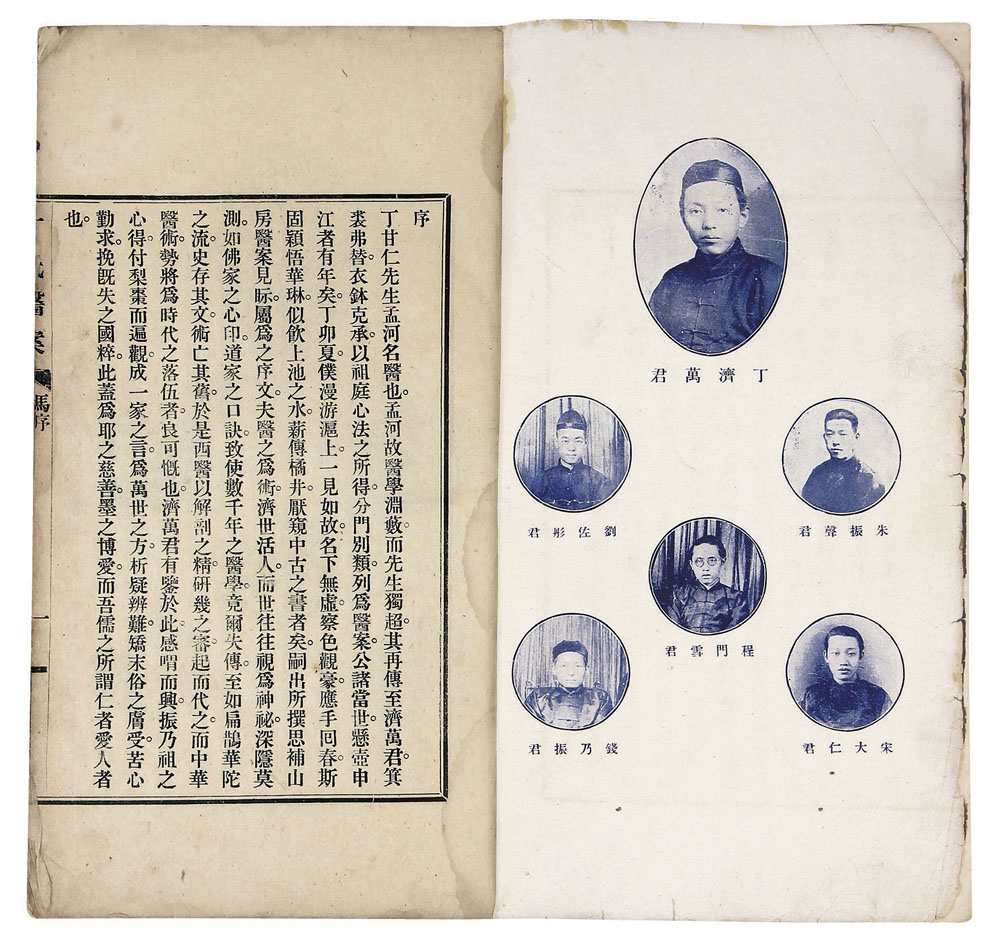 丁濟萬君
朱振聲君
劉佐彤君
程門雪君
宋大仁君
錢乃振君
序
丁甘仁先生孟河名醫也。孟河故醫學淵藪而先生獨超。其再傳至濟萬君。箕
裘弗替。衣鉢克承。以祖庭心法之所得。分門別類。列爲醫案。公諸當世。懸壺申
江者有年矣。丁卯夏。僕漫游滬上。一見如故。名下無虛。察色觀豪。應手回春。斯
固穎悟華琳。似飲上池之水。薪傳橘井。厭窺中古之書者矣。嗣出所撰思補山
房醫案見眎。屬爲之序文。夫醫之爲術。濟世活人。而世往往視爲神祕。深隱莫
測。如佛家之心印。道家之口訣。致使數千年之醫學。竟爾失傳。至如扁鵲華陀
之流。史存其文。術亡其舊。於是西醫以解剖之精。研幾之審。起而代之。而中華
醫術。勢將爲時代之落伍者。良可慨也。濟萬君有鑒於此。感喟而興。振乃祖之
心得。付梨棗而遍觀。成一家之言。爲萬世之方。析疑辨難。矯末俗之膚受。苦心
勤求。挽旣失之國粹。此蓋爲耶之慈善。墨之博愛。而吾儒之所謂仁者愛人者
也。
醫案 序 一